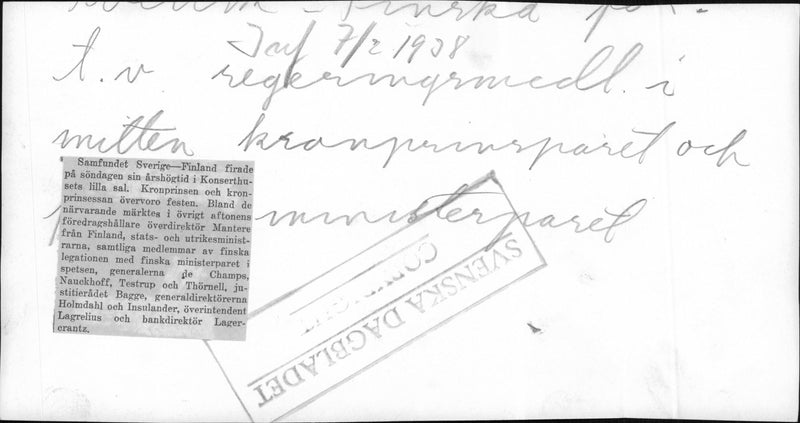 Inf 7/2 1938
t.v. regeringsmedl. i
mitten kronprinsparet och
ministerparet
Samfundet Sverige—Finland firade
på söndagen sin årshögtid i Konserthu-
sets lilla sal. Kronprinsen och kron-
prinsessan övervoro festen. Bland de
närvarande märktes i övrigt aftonens
föredragshållare överdirektör Mantere
från Finland, stats- och utrikesminist-
rarna, samtliga medlemmar av finska
legationen med finska ministerparet i
spetsen, generalerna de Champs,
Nauckhoff, Testrup och Thörnell, ju-
stitierådet Bagge, generaldirektörerna
Holmdahl och Insulander, överintendent
Lagrelius och bankdirektör Lager-
crantz.
SVENSKA DAGBLADET
COPYRIGHT